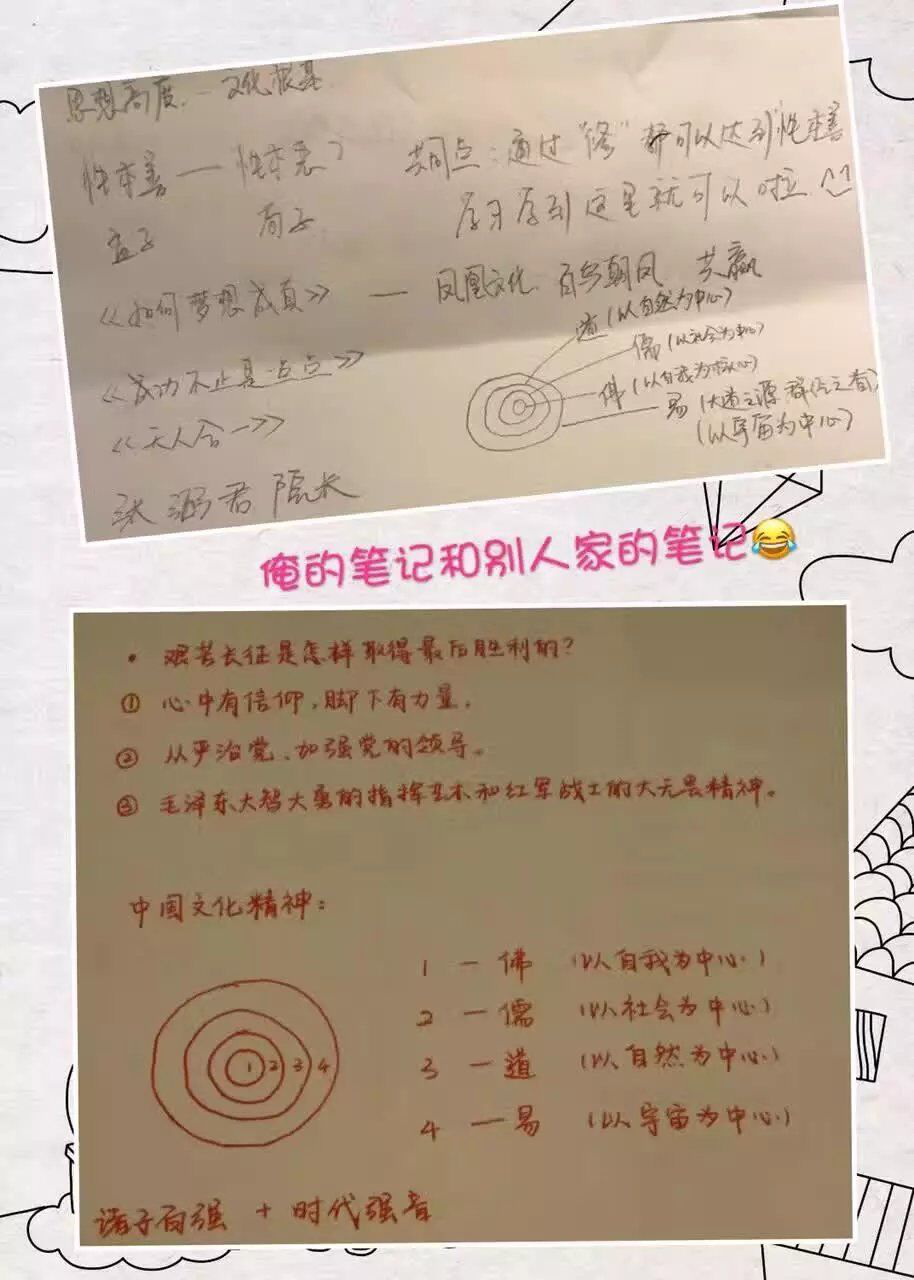 思想高度.—文化根基
性本善—性本恶?
孟子 荀子
共同点:通过"修"都可以达到"性本善
学习学到这里就可以啦 ^^
《如何梦想成真》— 凤凰文化.百鸟朝凤 共赢
道(以自然为中心)
儒(以社会为中心)
佛(以自我为核心)
易(大道之源 群经之首)
(以宇宙为中心)
《成功不止是一点点》
《天人合一》
张 君 院长
俺的笔记和别人家的笔记😂
• 艰苦长征是怎样取得最后胜利的?
① 心中有信仰,脚下有力量。
② 从严治党、加强党的领导。
③ 毛泽东大智大勇的指挥艺术和红军战士的大无畏精神。
中国文化精神:
1 2 3 4
1 — 佛 (以自我为中心)
2 — 儒 (以社会为中心)
3 — 道 (以自然为中心)
4 — 易 (以宇宙为中心)
诸子百强 + 时代强音